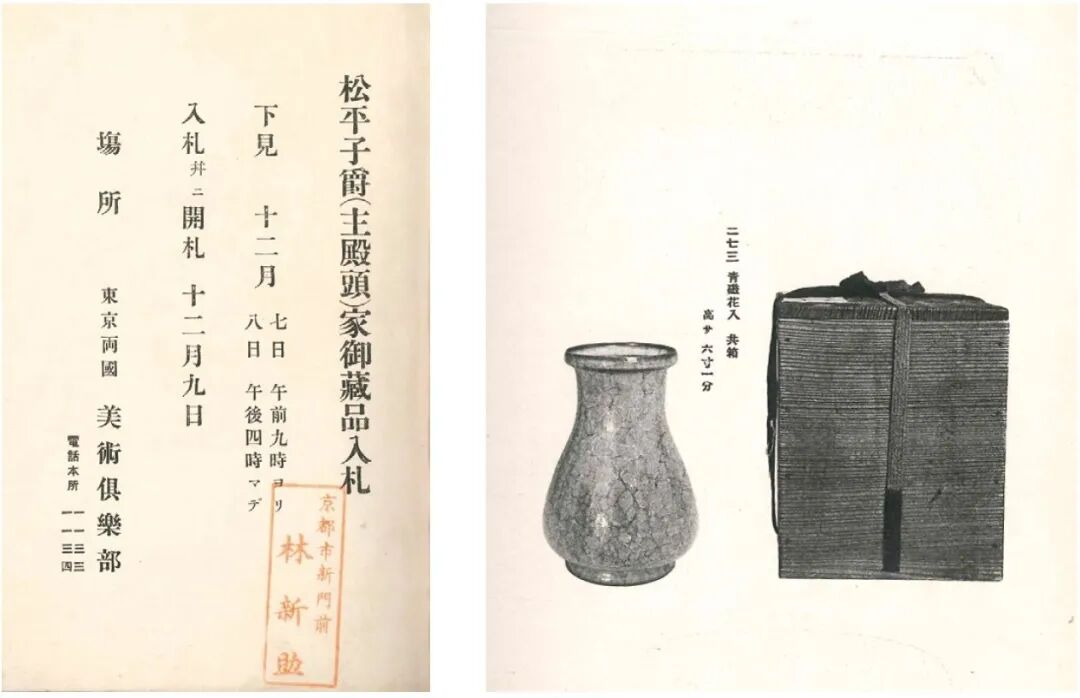 松平子爵(主殿頭)家御藏品入札
下見 十二月
七日 午前九時ヨリ
八日 午後四時マデ
入札幷ニ開札 十二月九日
塲所 東京両國 美術倶樂部
電話本所 一一三三
一一三四
京都市新門前
林新助
二七三 青磁花入 共箱
高サ 六寸一分